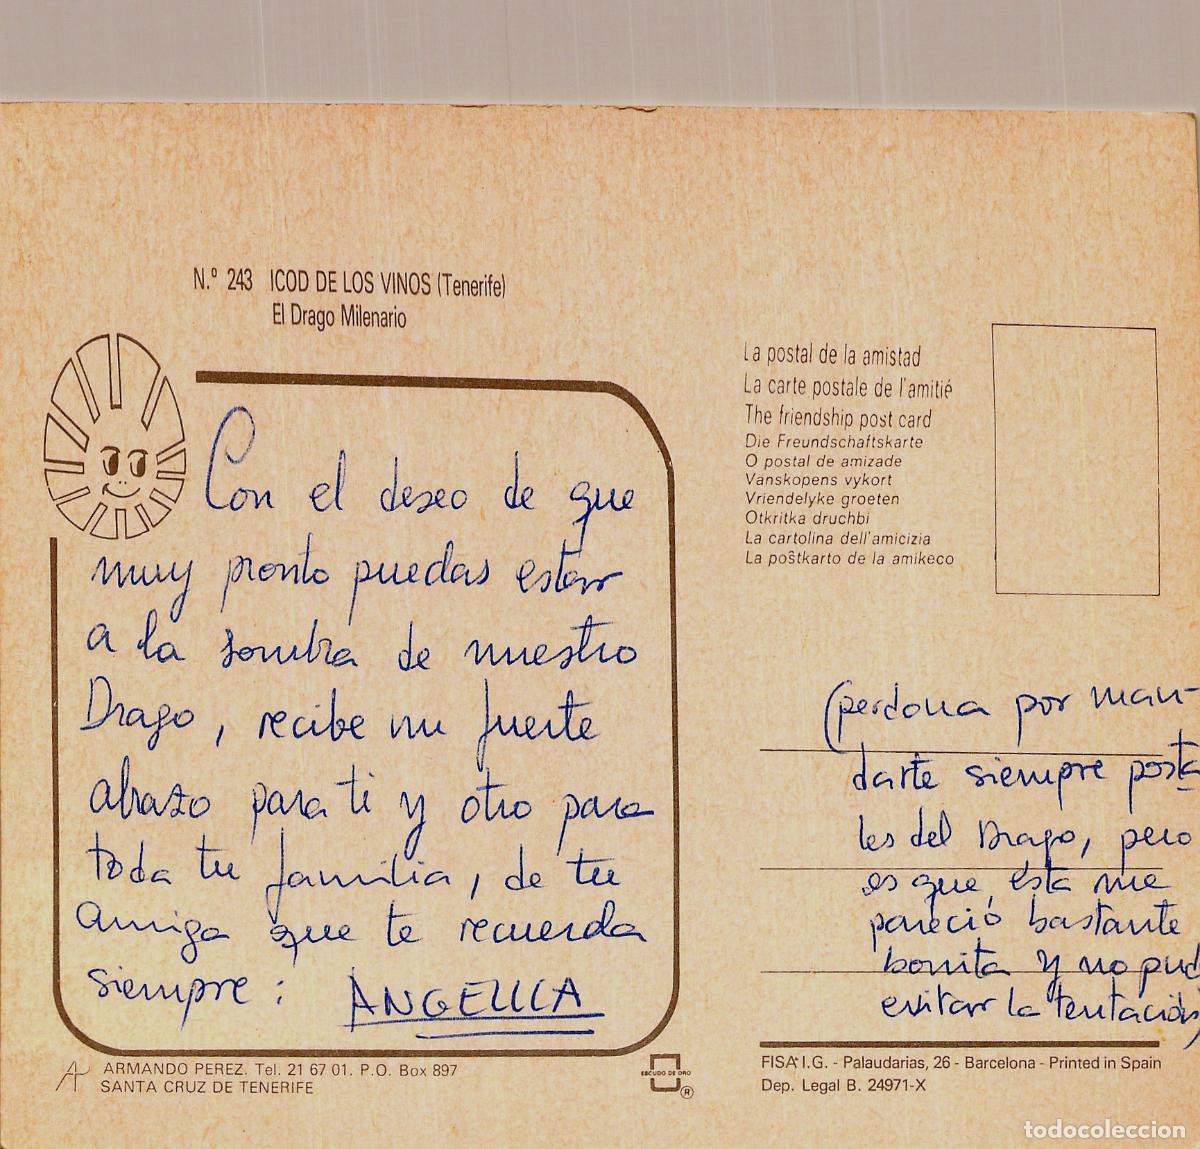 N.º 243 ICOD DE LOS VINOS (Tenerife)
El Drago Milenario
Con el deseo de que
muy pronto puedas estar
a la sombra de nuestro
Drago, recibe un fuerte
abrazo para ti y otro para
toda tu familia, de tu
amiga que te recuerda
siempre: ANGELICA
ARMANDO PEREZ. Tel. 21 67 01. P.O. Box 897
SANTA CRUZ DE TENERIFE
ESCUDO DE ORO
®
La postal de la amistad
La carte postale de l'amitié
The friendship post card
Die Freundschaftskarte
O postal de amizade
Vänskopens vykort
Vriendelyke groeten
Otkritka druchbi
La cartolina dell'amicizia
La poŝtkarto de la amikeco
(perdona por man-
darte siempre posta
les del Drago, pero
es que, ésta me
pareció bastante
bonita y no pud
evitar la tentación)
FISA I.G. - Palaudarias, 26 - Barcelona - Printed in Spain
Dep. Legal B. 24971-X
todocoleccion